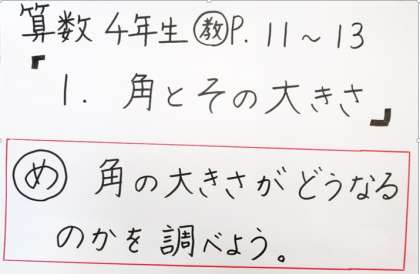 算数 4年生 ㊙教P.11～13
「1. 角とその大きさ」
め 角の大きさがどうなる
のかを調べよう。